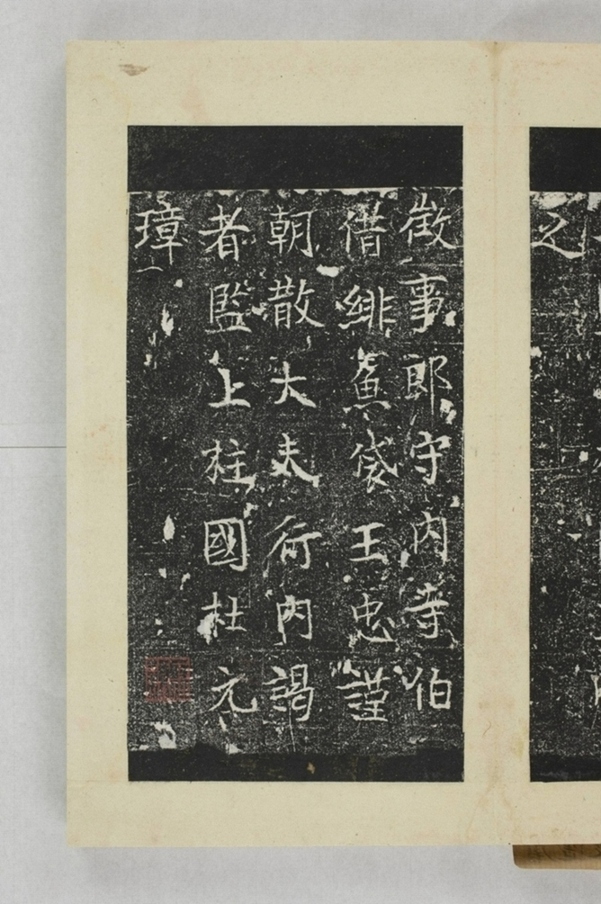 之
徵事郎守内寺伯
借緋魚袋王忠謹
朝散大夫行内謁
者監上柱國杜元
璋